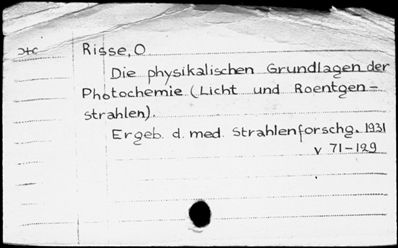 Risse, O
Die physikalischen Grundlagen der
Photochemie (Licht und Roentgen-
strahlen).
Ergeb. d. med. Strahlenforschg. 1931
v 71-129